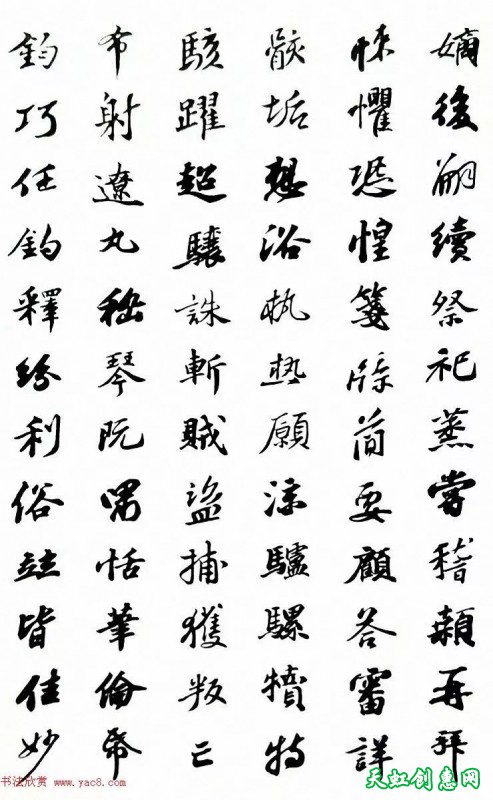 嫡後嗣續祭祀蒸嘗稽顙再拜
悚懼恐惶箋牒簡要顧答審詳
骸垢想浴執熱願涼驢騾犢特
駭躍超驤誅斬賊盜捕獲叛亡
布射遼丸嵇琴阮嘯恬筆倫帋
鈞巧任釣釋紛利俗竝皆佳妙
书法欣赏 www.yac8.com
天虹创意网